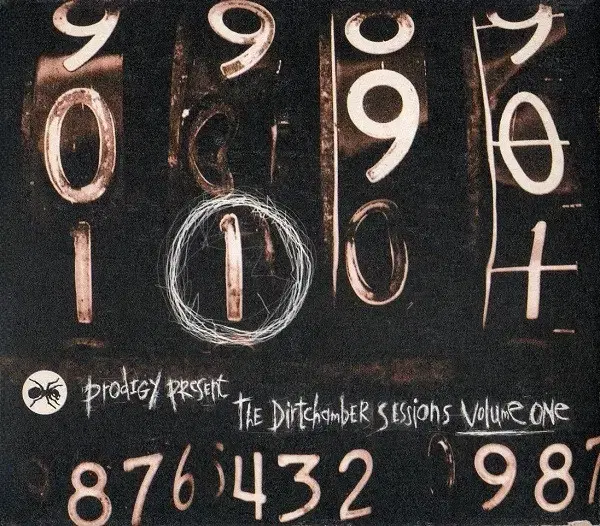 9 9 8 9
0 0 9 0
1 1 0 1
prodigy present
the Dirtchamber sessions Volume one
876 432 987